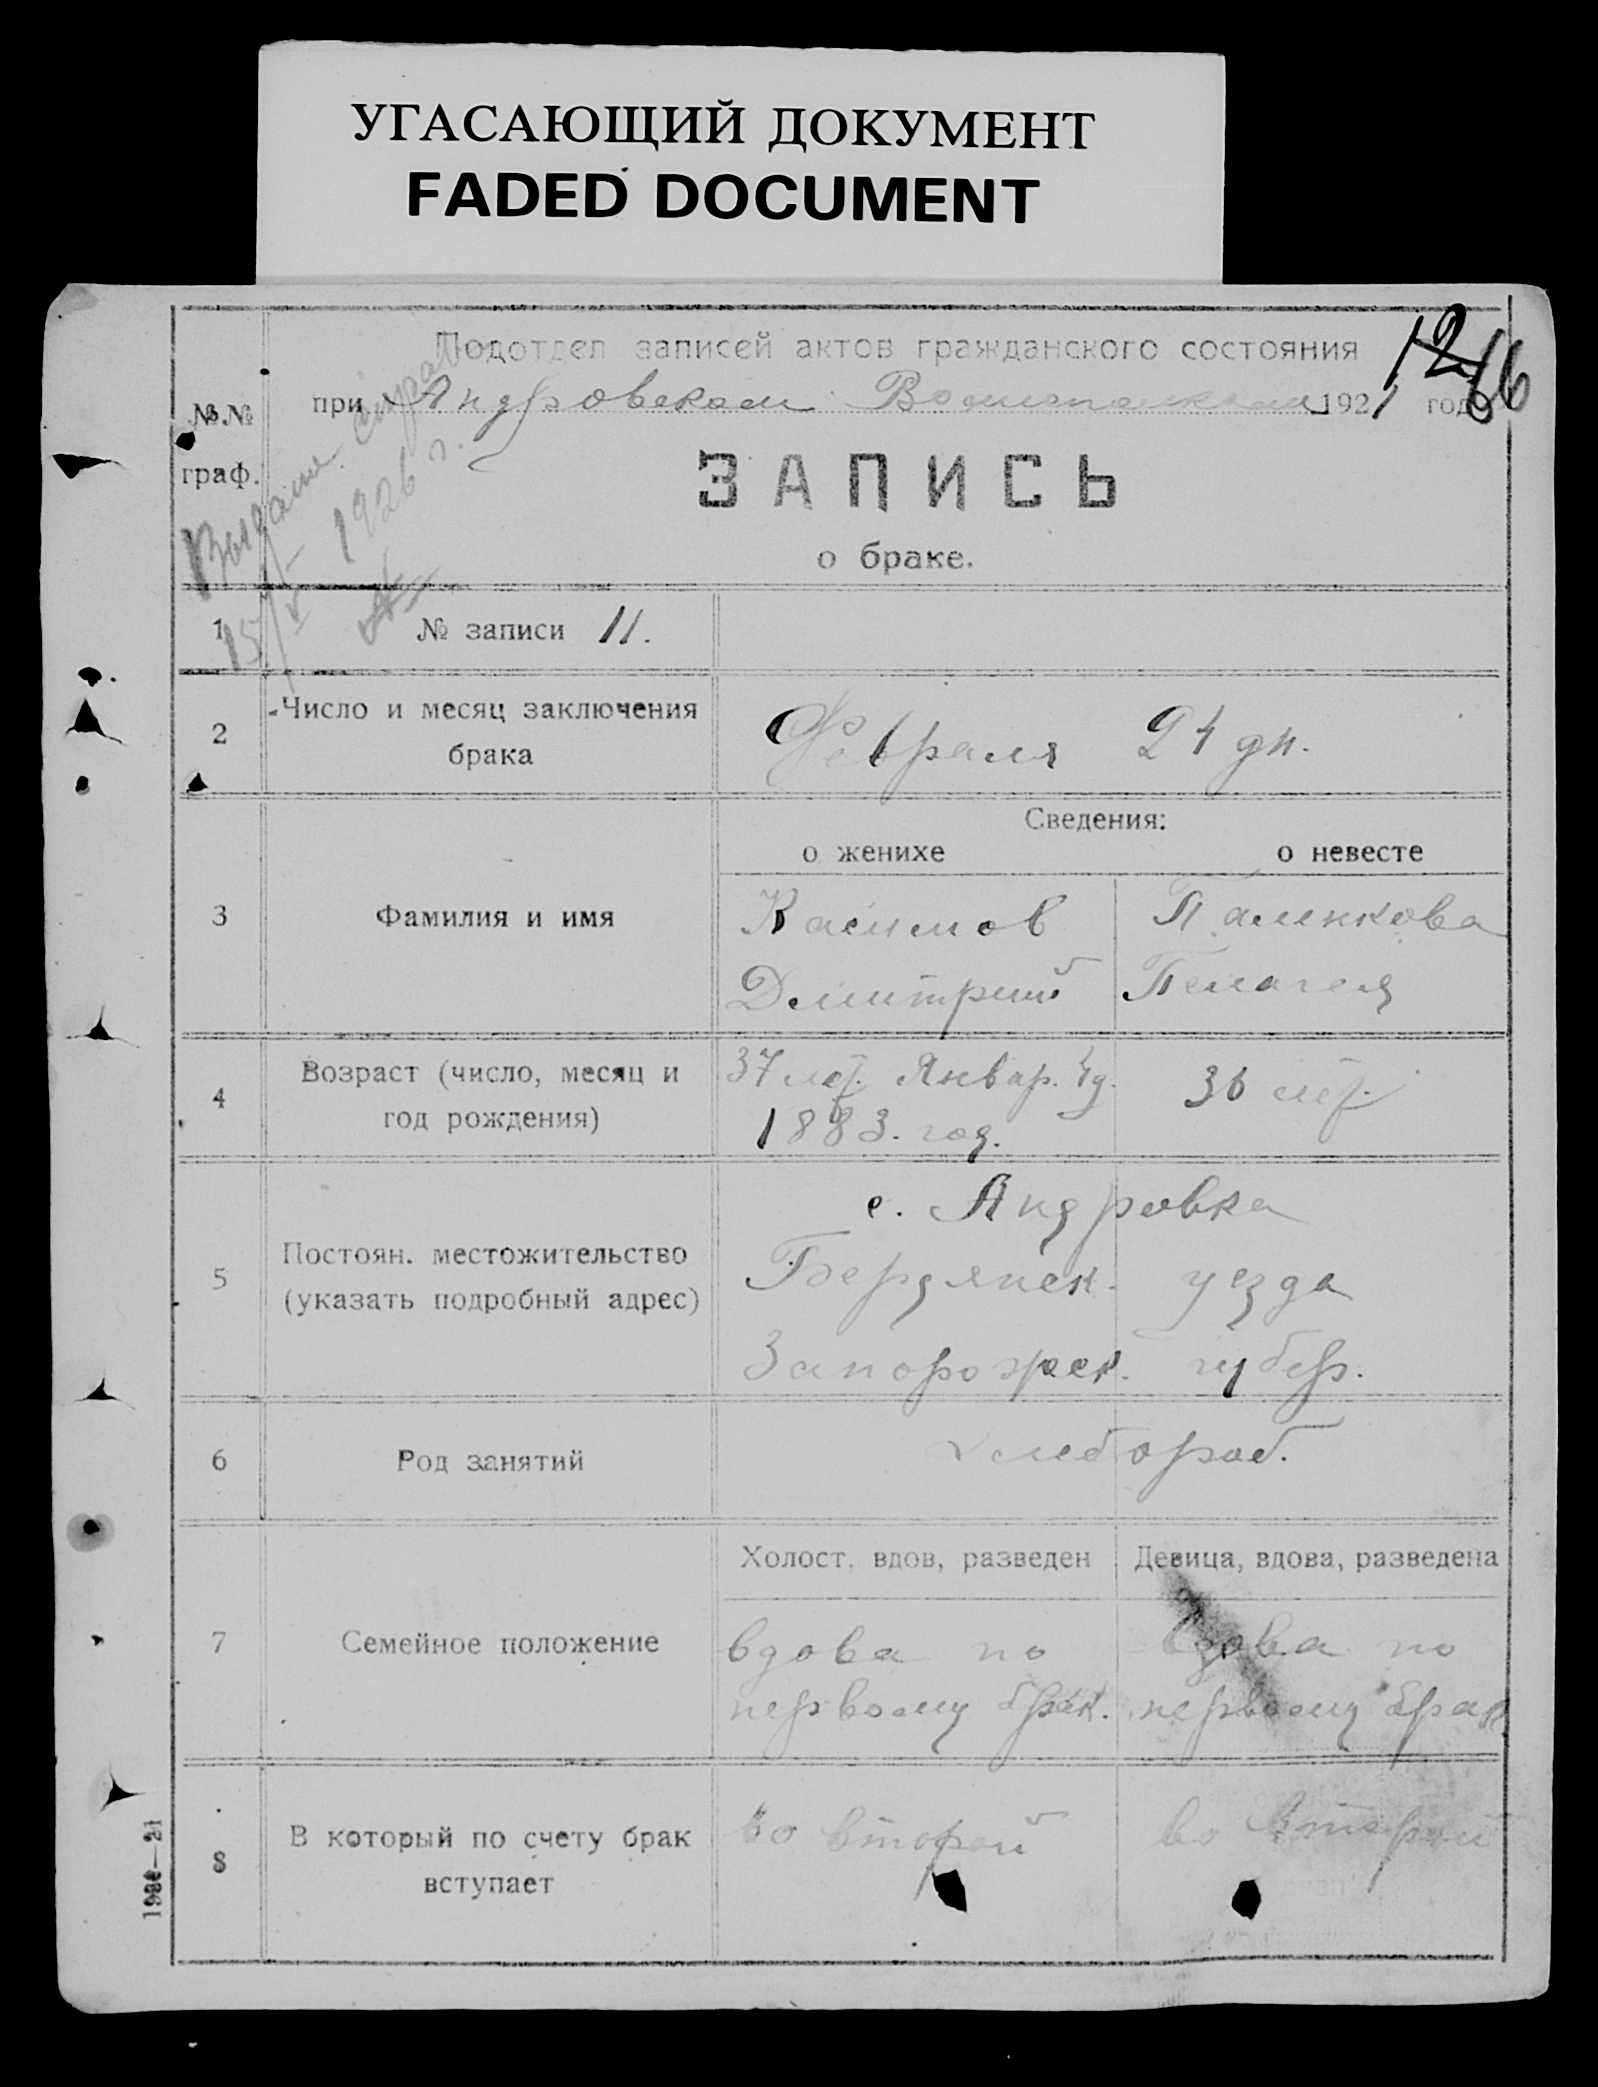 УГАСАЮЩИЙ ДОКУМЕНТ
FADED DOCUMENT
12 16
Подотдел записей актов гражданского состояния
при Андровском 1921 года
№№
граф.
ЗАПИСЬ
о браке.
Выдана справ
15/V 1926 г.
1 № записи 11.
2 Число и месяц заключения
брака
Февраля 24 дн.
Сведения:
о женихе о невесте
3 Фамилия и имя
Касимов
Дмитрий
Паленкова
Пелагея
4 Возраст (число, месяц и
год рождения)
37 лет. Январ. 4д.
1883. год.
36 лет.
5 Постоян. местожительство
(указать подробный адрес)
с. Андровка
Бердянск. уезда
Запорожск. губер.
6 Род занятий
хлебороб.
Холост, вдов, разведен Девица, вдова, разведена
7 Семейное положение
вдова по
первому брак.
вдова по
первому брак
8 В который по счету брак
вступает
во второй
во второй